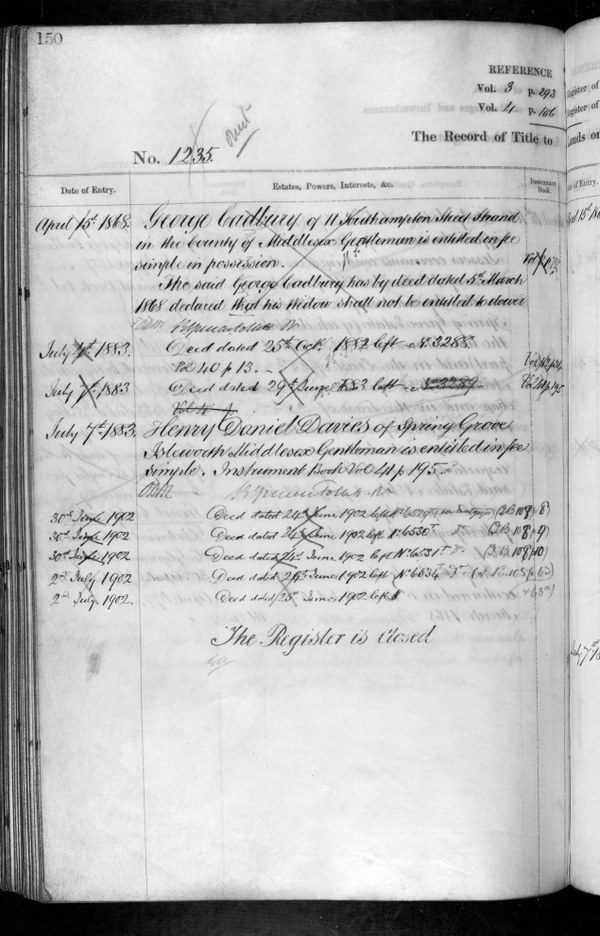 150
REFERENCE
Vol. 3 p. 293
Vol. 4 p. 186
The Record of Title to
No. 1235.
Date of Entry.
Estates, Powers, Interests, &c.
Instrument Book.
April 15th 1868. George Cadbury of 11 Southampton Street Strand
in the County of Middlesex Gentleman is entitled in fee
simple in possession.
The said George Cadbury has by deed dated 5th March
1868 declared that his Widow shall not be entitled to dower
July 7th 1883. Deed dated 25th Oct. 1882 left No 3288
Vol 40 p 13.
July 7th 1883 Deed dated 29th June 1883 left No 3289
July 7th 1883. Henry Daniel Davies of Spring Grove
Isleworth Middlesex Gentleman is entitled in fee
simple. Instrument Book Vol 41 p 195
30th June 1902 Deed dated 24th June 1902 left No 6529
30th June 1902 Deed dated 24th June 1902 left No 6530
30th June 1902 Deed dated 24th June 1902 left No 6531
2nd July 1902 Deed dated 24th June 1902 left No 6534
2nd July 1902. Deed dated 25th June 1902 left
The Register is Closed